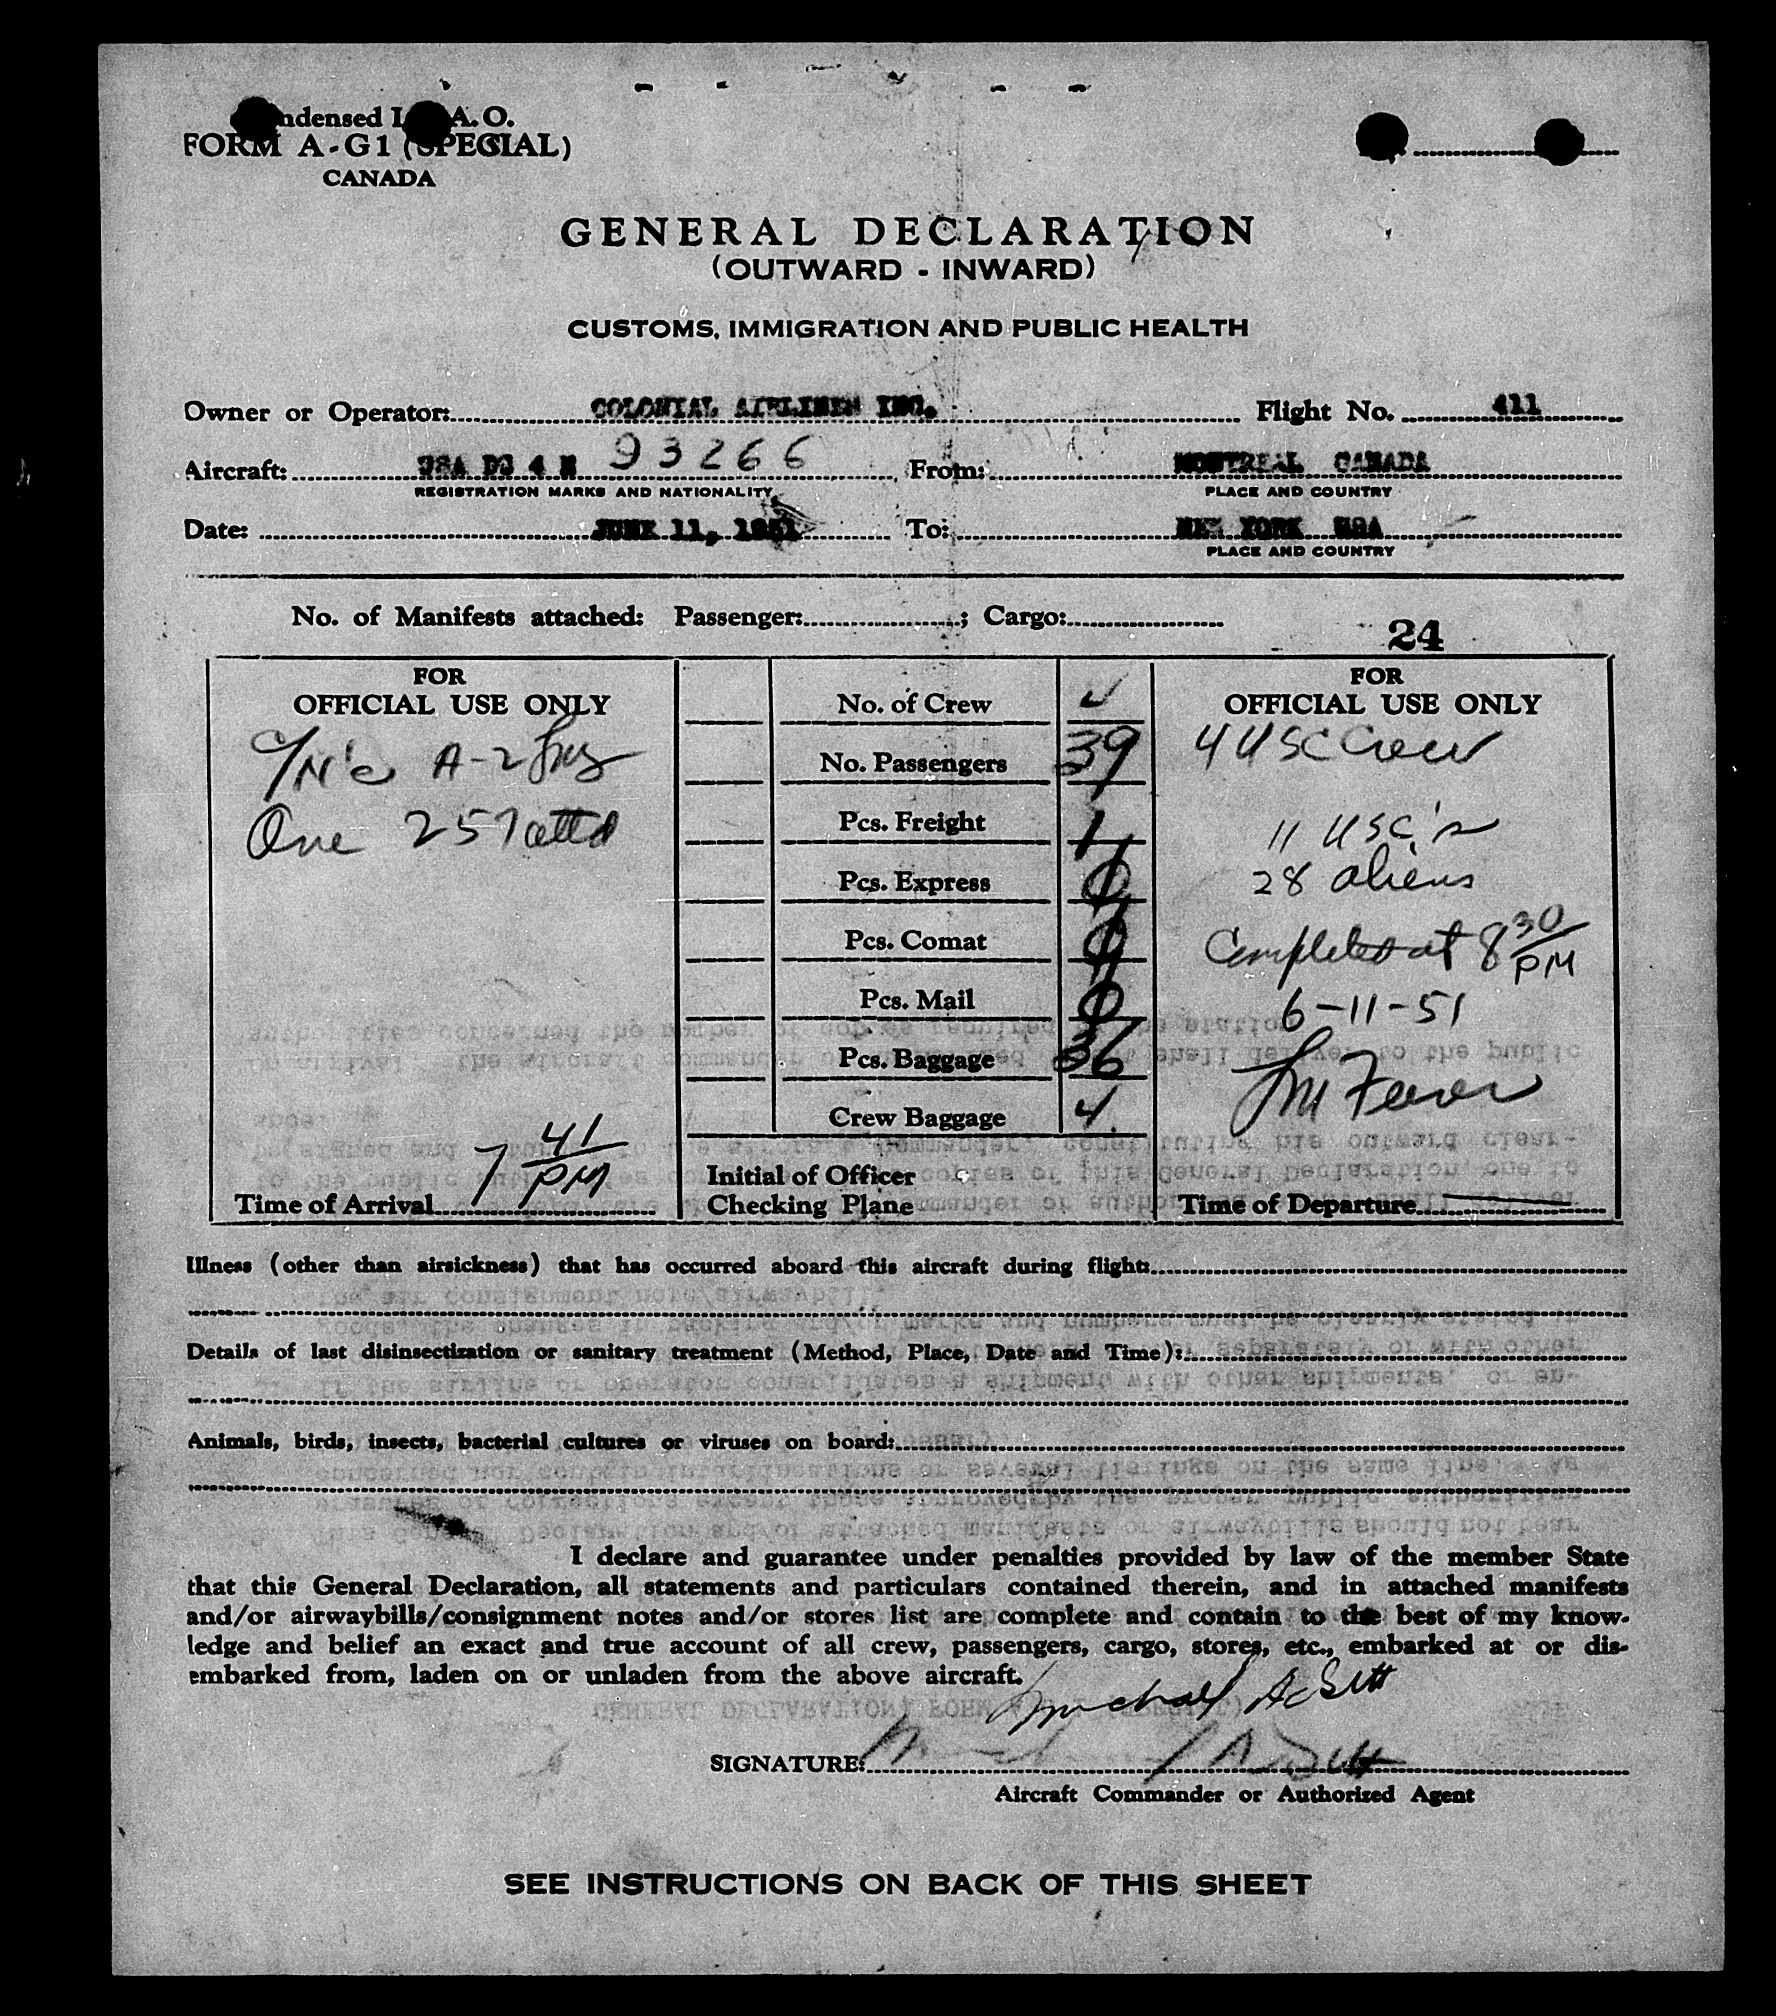 Condensed I. A. O.
FORM A-G1 (SPECIAL)
CANADA
GENERAL DECLARATION
(OUTWARD - INWARD)
CUSTOMS, IMMIGRATION AND PUBLIC HEALTH
Owner or Operator: COLONIAL AIRLINES INC. Flight No. 411
Aircraft: USA DC 4 N 93266 From: MONTREAL CANADA
REGISTRATION MARKS AND NATIONALITY PLACE AND COUNTRY
Date: JUNE 11, 1951 To: NEW YORK USA
PLACE AND COUNTRY
No. of Manifests attached: Passenger: ; Cargo:
24
FOR
OFFICIAL USE ONLY
One 257 attd
7 41 PM
Time of Arrival
No. of Crew
No. Passengers 39
Pcs. Freight 1
Pcs. Express 0
Pcs. Comat 0
Pcs. Mail 0
Pcs. Baggage 36
Crew Baggage 4
Initial of Officer
Checking Plane
FOR
OFFICIAL USE ONLY
4 USC Crew
11 USC's
28 aliens
Completed at 8 30 PM
6-11-51
Time of Departure
Illness (other than airsickness) that has occurred aboard this aircraft during flight:
Details of last disinsectization or sanitary treatment (Method, Place, Date and Time):
Animals, birds, insects, bacterial cultures or viruses on board:
I declare and guarantee under penalties provided by law of the member State
that this General Declaration, all statements and particulars contained therein, and in attached manifests
and/or airwaybills/consignment notes and/or stores list are complete and contain to the best of my know-
ledge and belief an exact and true account of all crew, passengers, cargo, stores, etc., embarked at or dis-
embarked from, laden on or unladen from the above aircraft.
SIGNATURE:
Aircraft Commander or Authorized Agent
SEE INSTRUCTIONS ON BACK OF THIS SHEET